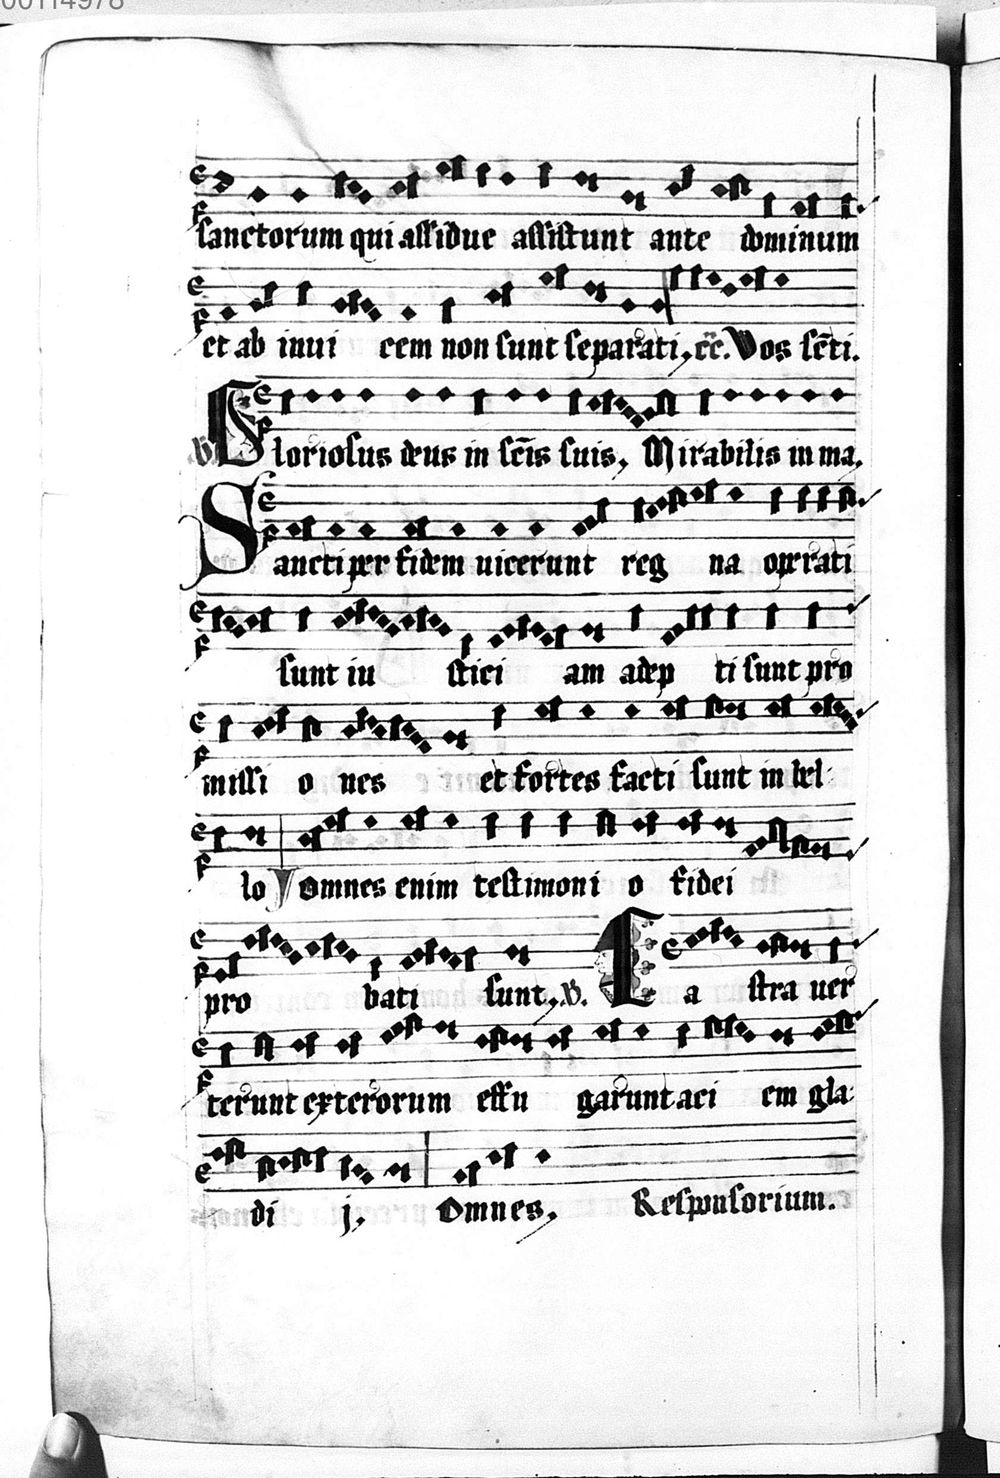 00114978
sanctorum qui assidue assistunt ante dominum
et ab inui cem non sunt separati, ec̄. Vos sc̄ti.
V Gloriosus deus in sc̄is suis, Mirabilis in ma.
Sancti per fidem uicerunt reg na operati
sunt iu stici am adep ti sunt pro
missi o nes et fortes facti sunt in bel
lo Omnes enim testimoni o fidei
pro bati sunt, V. Ca stra uer
terunt exterorum effu garunt aci em gla
di j, Omnes, Responsorium.